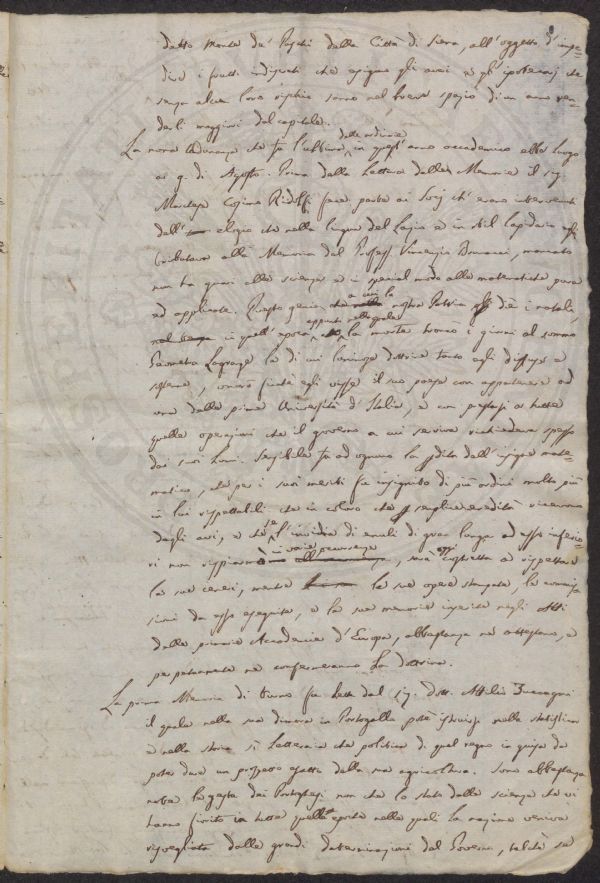 detto Monte de' Paschi della Città di Siena, all'oggetto d'impe-
dire i frutti indiscreti che esigono gli avari e gl' che
senza alcun loro rischio sanno nel breve spazio di un anno ren-
derli maggiori del capitale.
La nona Adunanza che fu l'ultima delle ordinarie in quest'anno accademico ebbe luogo
ai 9. di Agosto. Prima della Lettura delle Memorie il sig.
Marchese Cosimo Ridolfi fece parte ai Socj ch'erano intervenuti
dell' elogio che nella lingua del Lazio e in stil lapidario
tributava alla Memoria del Profess. Vincenzio Brunacci, mancato
non ha guari alle scienze e in special modo alle matematiche pure
ed applicate. Questo genio a cui la nostra Patria diè i natali
in quell'epoca appunto nella quale la morte troncò i giorni al sommo
Geometra Lagrange la di cui luminosa dottrina tanto egli diffuse e
sostenne, onorò finchè egli visse il suo paese con appartenere ad
una delle prime Università d'Italia, e con prestarsi a tutte
quelle operazioni che il governo a cui serviva richiedeva spesso
dai suoi lumi. Sensibile fu ad ognuno la perdita dell'insigne mate-
matico, che per i suoi meriti fu insignito di più ordini molto più
in lui rispettabili che in coloro che semplice eredità riceverono
dagli avi, e che se l'invidia di emuli di gran lunga ad esso inferio-
ri non risparmiò in varie, sarà oggi costretta a rispettare
le sue ceneri, mentre le sue opere stampate, le commis-
sioni da esso eseguite, e le sue memorie inserite negli Atti
delle primarie Accademie d'Europa, abbastanza ne attestano, e
perpetuamente ne confermeranno la dottrina.
La prima Memoria di turno fu letta dal sig. Dott. Attilio Zuccagni
il quale nella sua dimora in Portogallo potè istruirsi nella statistica
e nella storia sì letteraria che politica di quel regno in guisa da
poter dare un prospetto esatto della sua agricoltura. Sono abbastanza
note le gesta dei Portoghesi non che lo stato delle scienze che vi
hanno fiorito in tutte quelle epoche nelle quali la nazione veniva
risvegliata dalle grandi determinazioni del Governo, talchè se